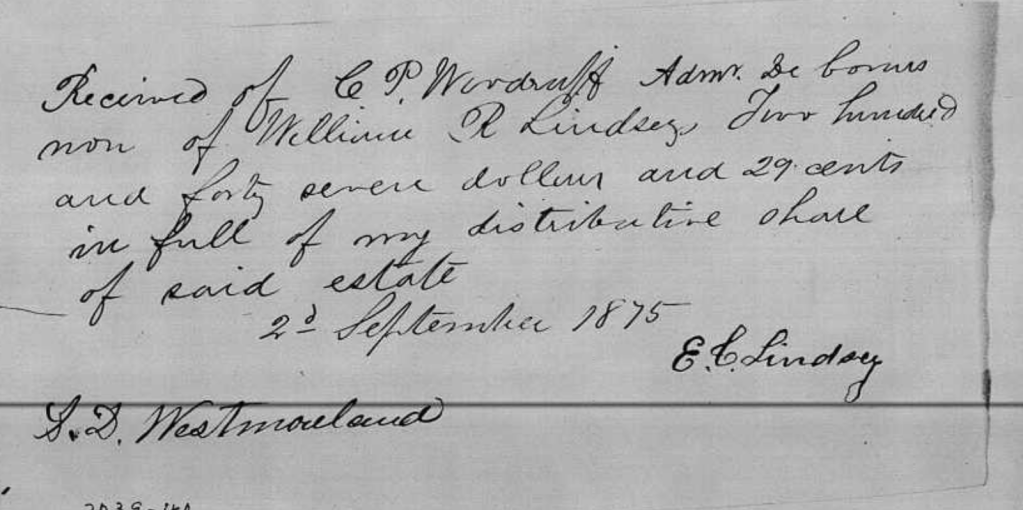 Recieved of C P. Woodruff Admr. De bonus
non of William R Lindsey, Two hundred
and forty seven dollars and 29 cents
in full of my distributive share
of said estate
2d September 1875
E. C. Lindsey
S. D. Westmoreland